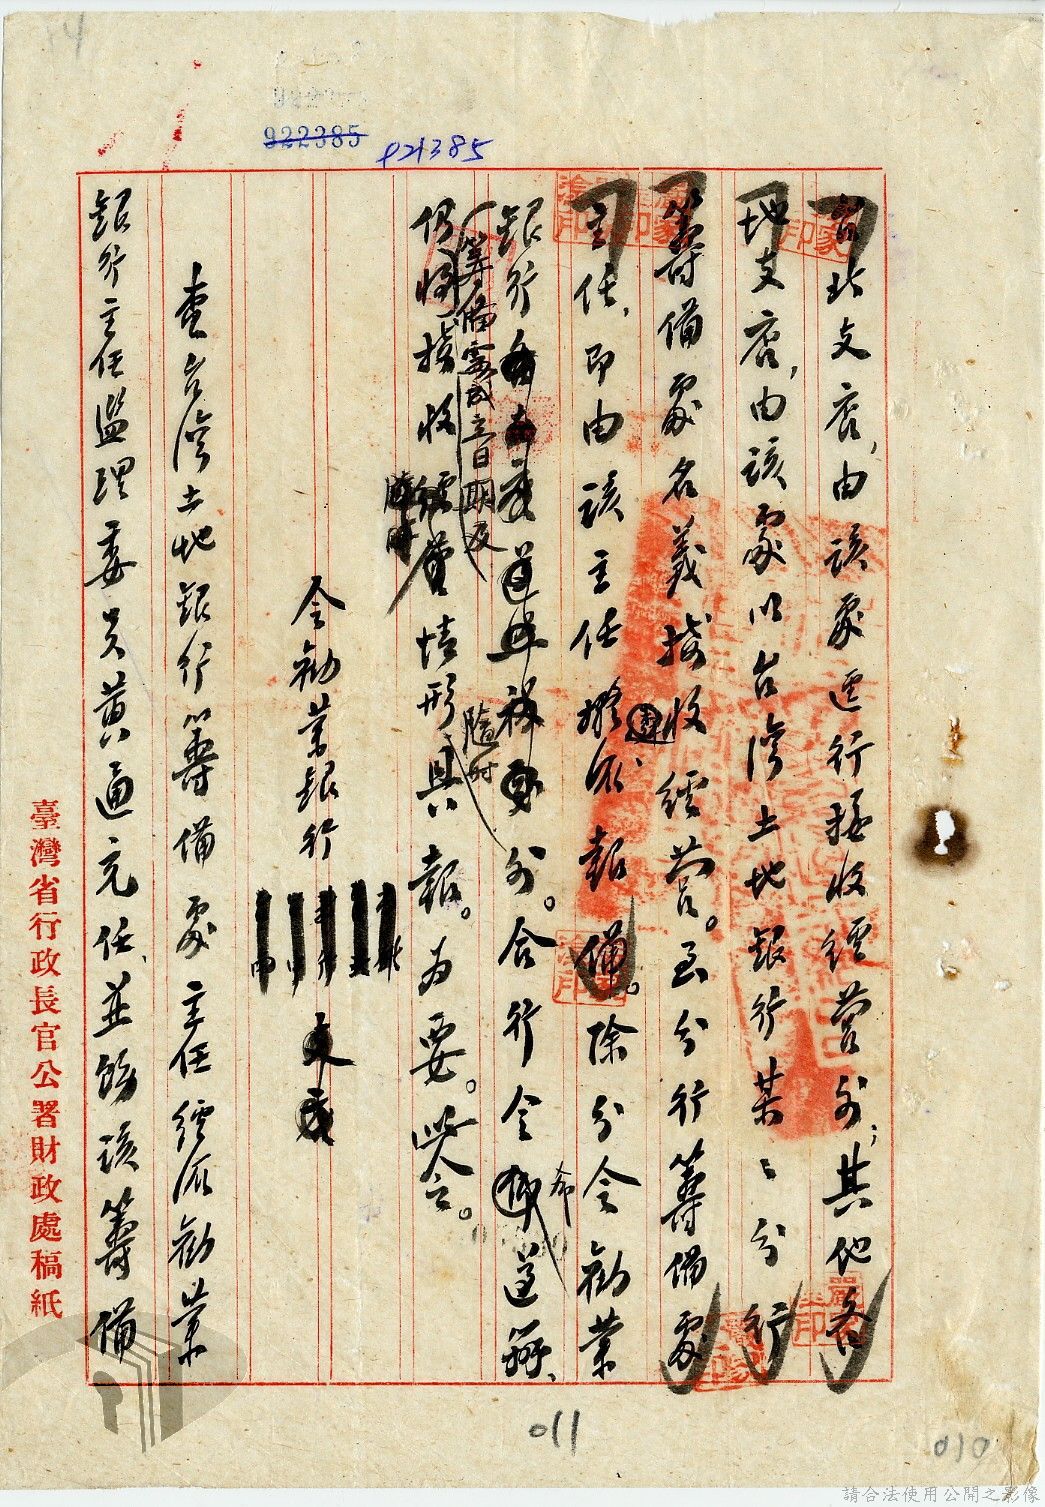 922385
921385
台北支店，由該處逕行接收經營外；其他各
地支店，由該處以台灣土地銀行某某分行
籌備處名義接收經營。至分行籌備處
主任，即由該主任擬派報備。除分令勸業
銀行外。合行令希遵辦、
籌備處成立日期及
仍將接收經營情形隨時具報。為要。此令。
令勸業銀行
查台灣土地銀行籌備處主任經派勸業
銀行主任監理委員黃通充任、並飭該籌備
臺灣省行政長官公署財政處稿紙
011
010
請合法使用公開之影像